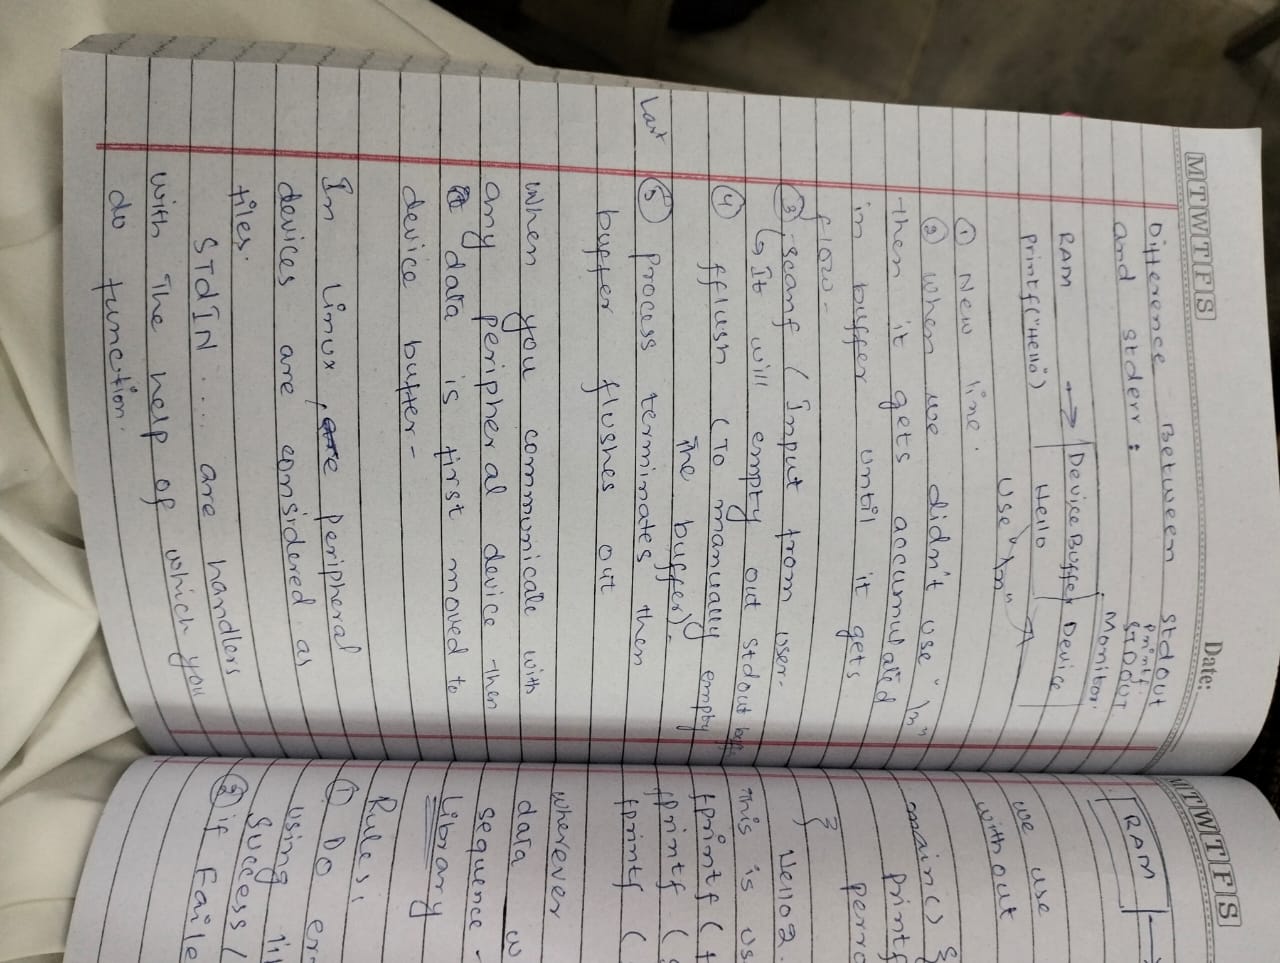 MTWTFS
Date:
Difference Between stdout
printf
and stderr : STDOUT
Monitor.
RAM → Device Buffer Device
printf("Hello") Hello
Use "\n"
① New line.
② when we didn't use "\n"
then it gets accumulated
in buffer until it gets
flow.
③ scanf (Input from user.
↳ It will empty out stdout
④ fflush (To manually empty
The buffer).
Last ⑤ process terminates then
buffer flushes out
When you communicate with
any peripheral device then
data is first moved to
device buffer.
In linux, peripheral
devices are considered as
files.
STdIN .... are handlers
with The help of which you
do function.
MTWTFS
RAM
we use
without
main() {
printf
perro
}
Hello2.
This is us
fprintf (
fprintf (
fprintf (
wherever
data w
sequence.
Library
Rules:
① DO err
using li
success /
② if Faile